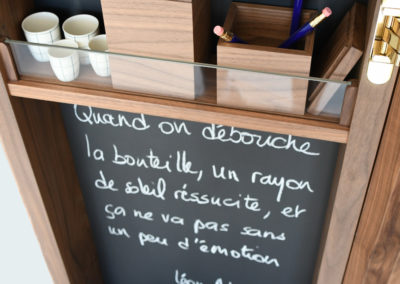 Quand on débouche
la bouteille, un rayon
de soleil réssucite, et
ça ne va pas sans
un peu d'émotion